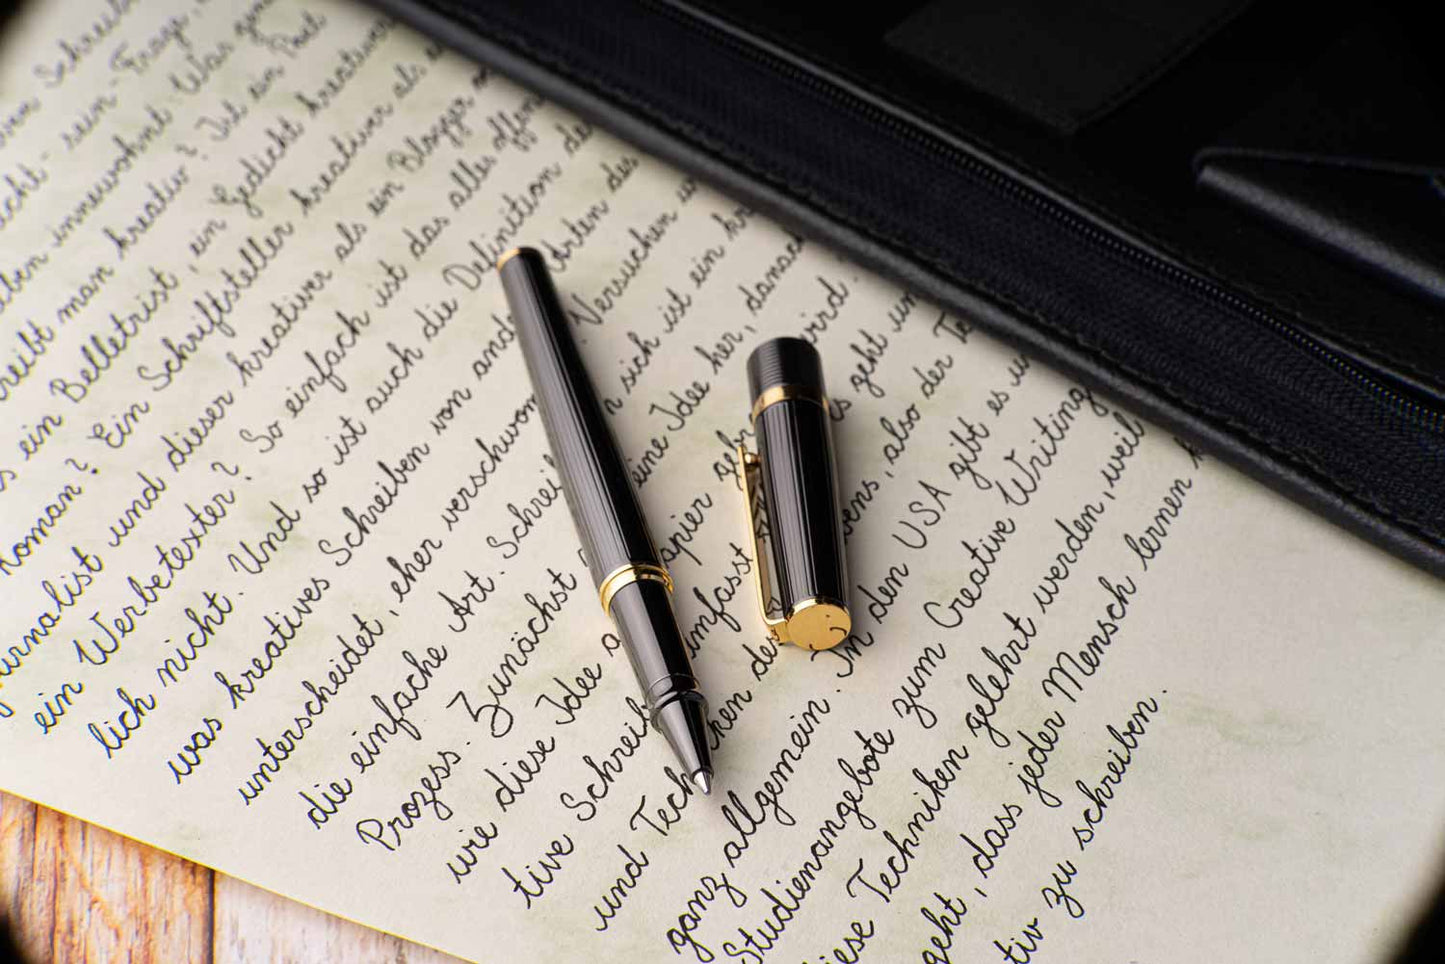 Schreib
cht - sein Frage,
ben innewohnt. Was
reibt man kreativ? Ist ein Poet
s ein Belletrist, ein Gedicht kreativer
Roman? Ein Schriftsteller kreativer als
urnalist und dieser kreativer als ein Blogger
ein Werbetexter? So einfach ist das alles offen
lich nicht. Und so ist auch die Definition de
was kreatives Schreiben von and rten des
unterscheidet, eher verschwom Versuchen
die einfache Art. Schrei n sich ist ein kr
Prozess. Zunächst eine Idee her, danach
wie diese Idee a apier geb wird.
tive Schreib umfasst s geht un
und Tech ken de ens, also der Te
ganz allgemein. In den USA gibt es u
Studienangebote zum Creative Writing
iese Techniken gelehrt werden, weil
geht, dass jeder Mensch lernen k
tiv zu schreiben.